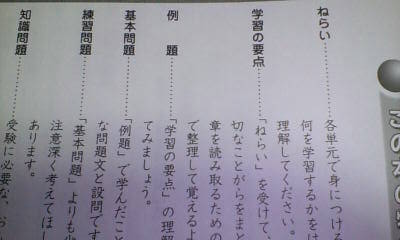 この本の
ねらい……………各単元で身につける
何を学習するかをは
理解してください。
学習の要点………「ねらい」を受けて、
切なことがらをまと
章を読み取るための
で整理して覚えるよ
例　題……………「学習の要点」の理解
てみましょう。
基本問題…………「例題」で学んだこと
な問題文と設問です
練習問題…………「基本問題」よりも少
注意深く考えてほし
あります。
知識問題…………受験に必要な、